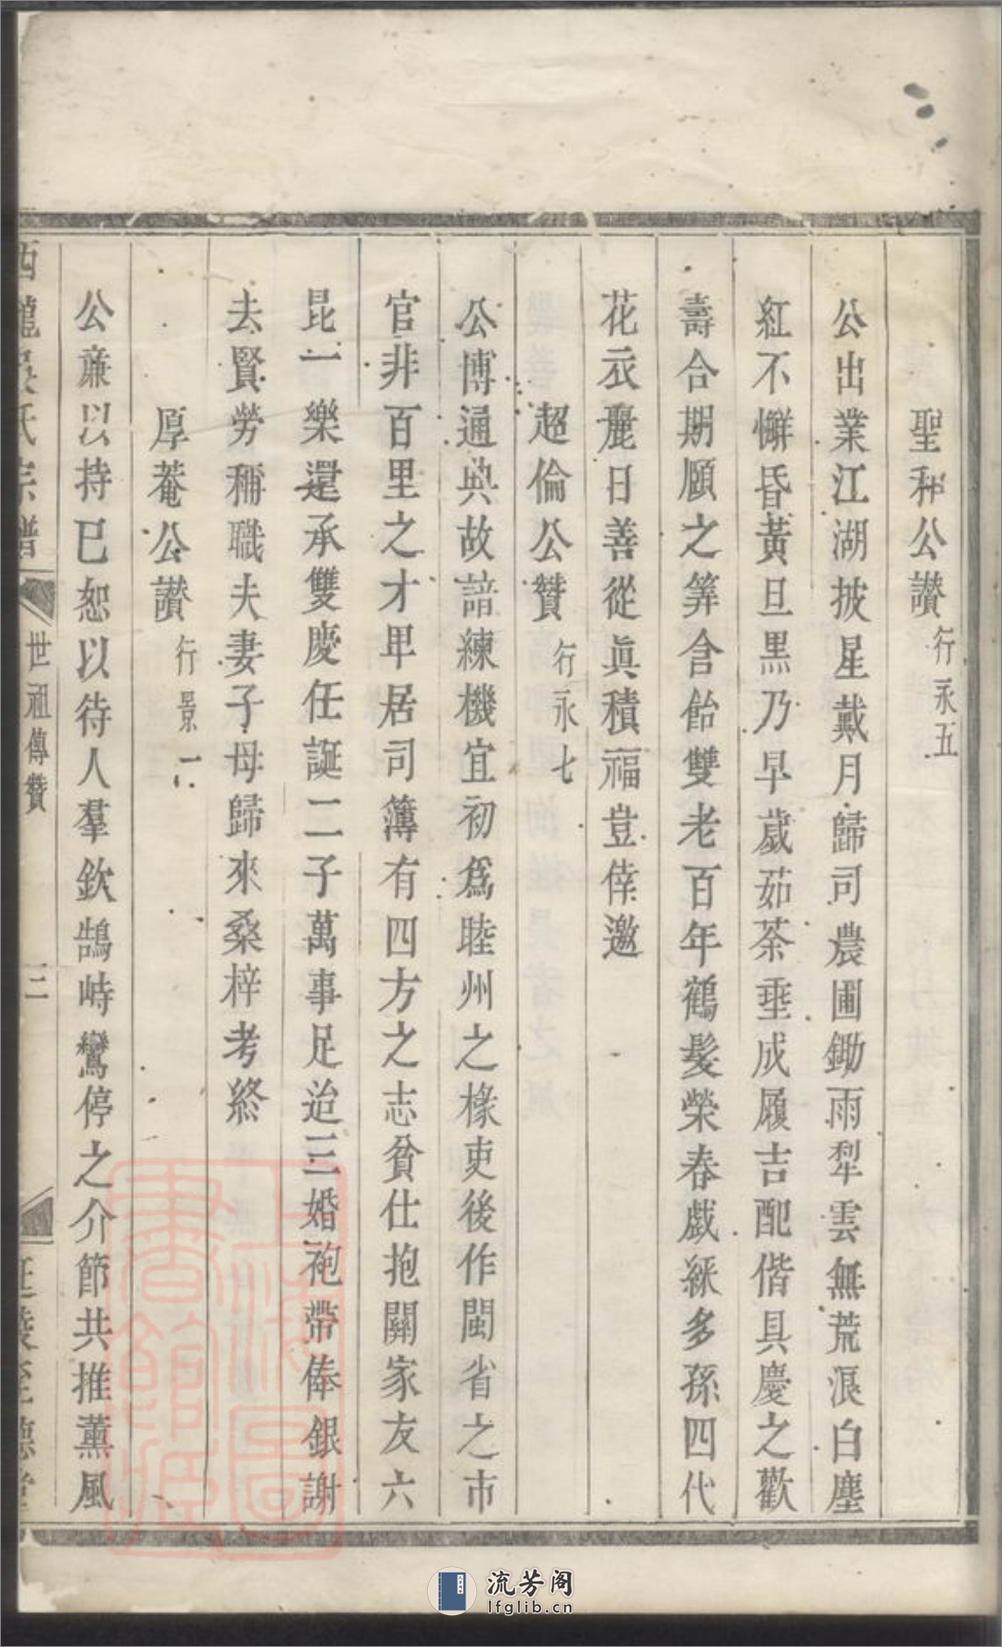 聖和公讃 行永五
公出業江湖披星戴月歸司農圃鋤雨犁雲無荒浪白塵
紅不懈昏黃旦黑乃早歲茹荼垂成履吉配偕具慶之歡
壽合期頤之筭含飴雙老百年鶴髮榮春戲綵多孫四代
花衣麗日善從眞積福豈倖邀
超倫公贊 行永七
公博通典故諳練機宜初爲睦州之椽吏後作閩省之市
官非百里之才早居司簿有四方之志貧仕抱關家友六
昆一樂還承雙慶任誕二子萬事足迨三婚袍帶俸銀謝
去賢勞稱職夫妻子母歸來桑梓考終
厚菴公讃 行景一
公亷以持已恕以待人羣欽鵠峙鸞停之介節共推薰風
氏宗譜
世祖傳贊
三
流芳阁
lfglib.cn